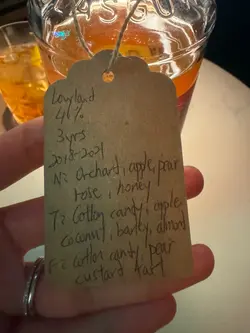 Lowland
41%
3yrs
2018-2021
N: Orchard, apple, pear
rose, honey
T: Cotton candy, apple
coconut, barley, almond
F: cotton candy, pear
custard tart